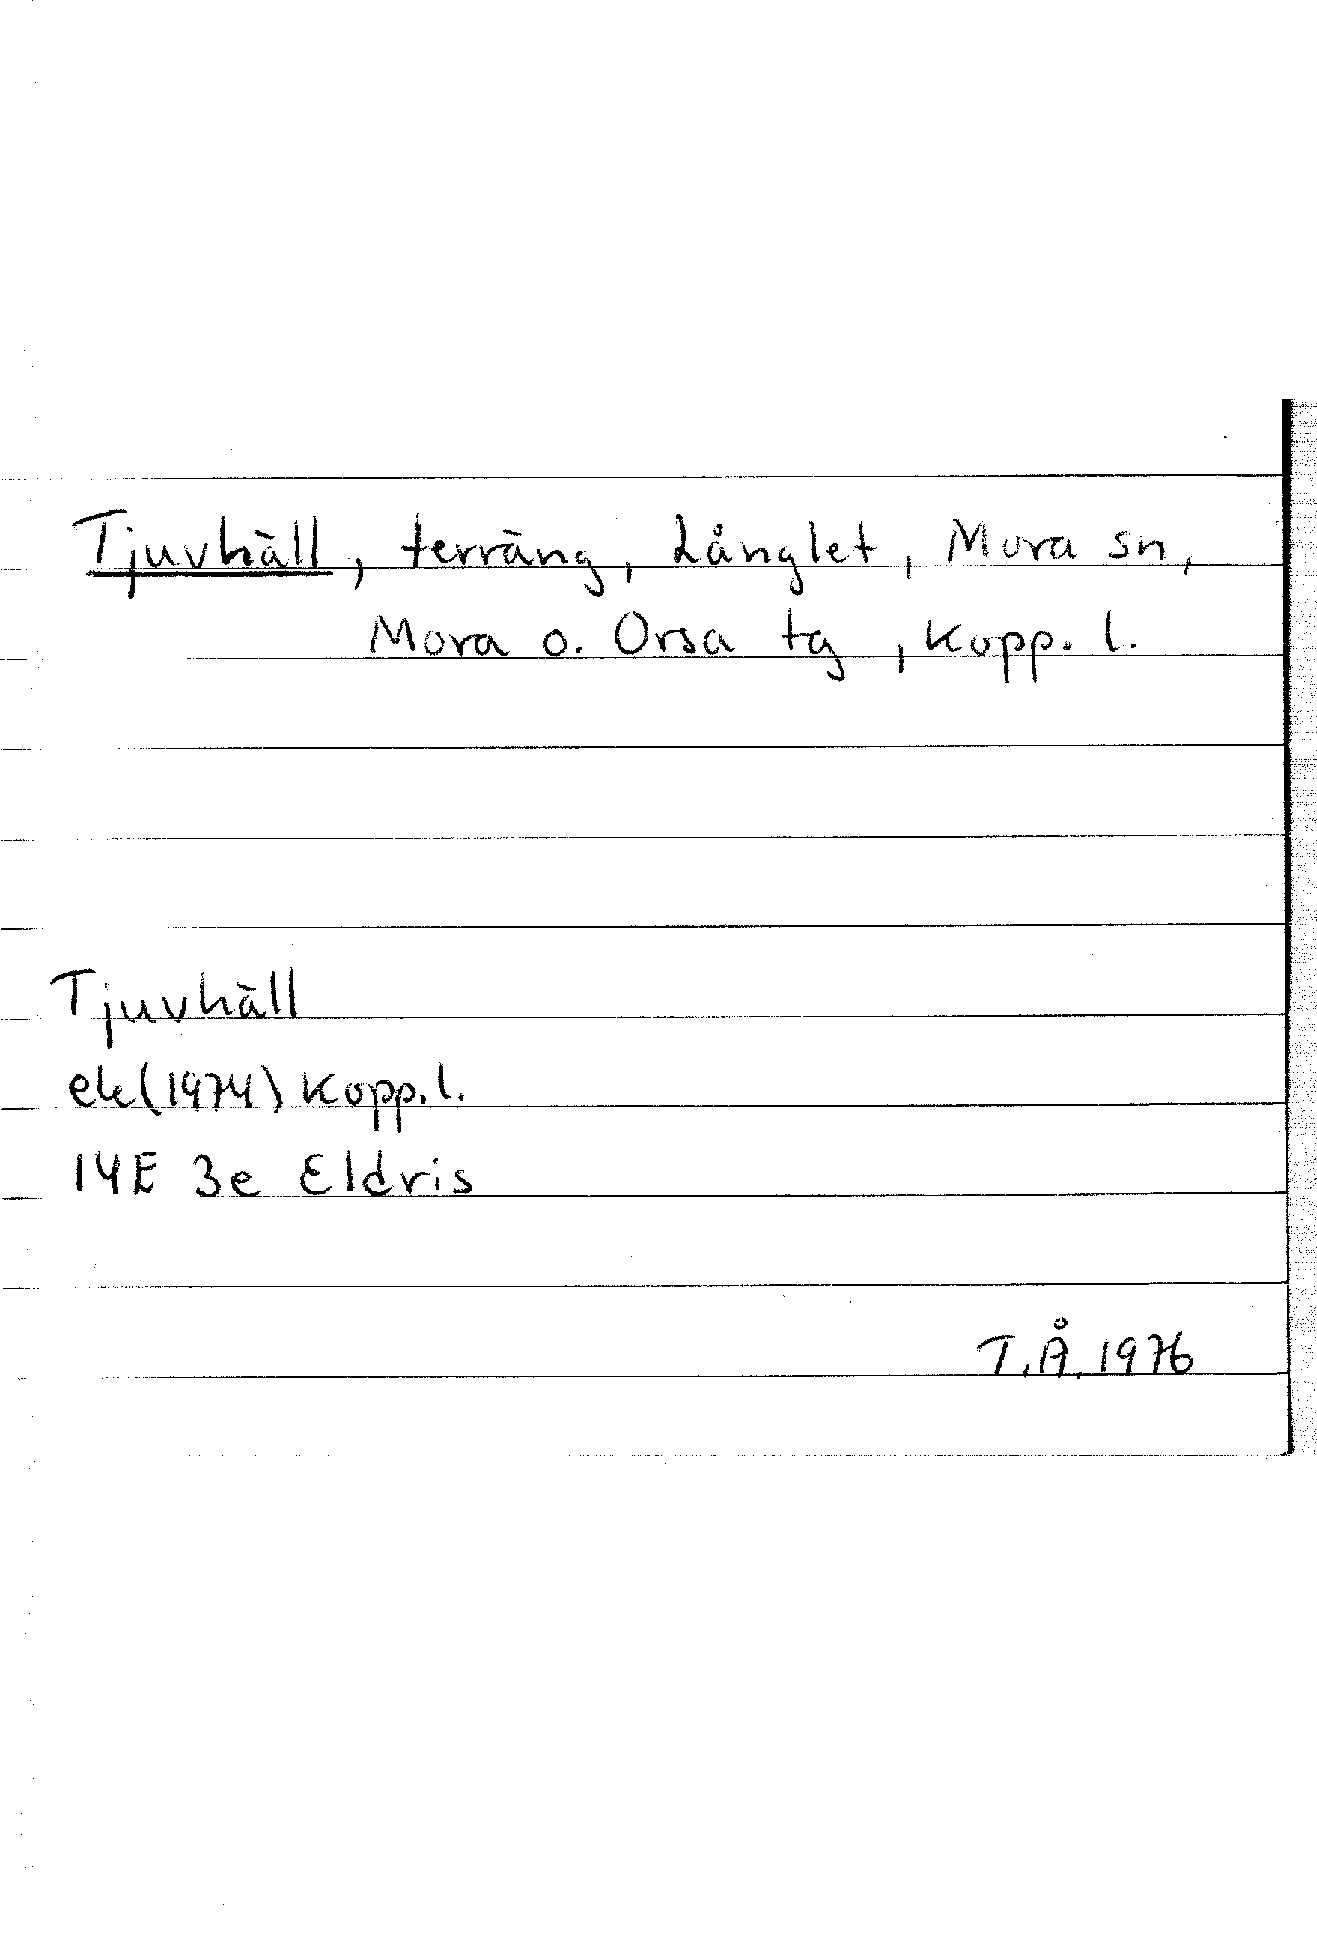 Tjuvhäll, terräng, Långlet, Mora sn,
Mora o. Orsa tg, Kopp. l.
Tjuvhäll
ek(1974) Kopp.l.
14E 3e Eldris
T.Å.1976